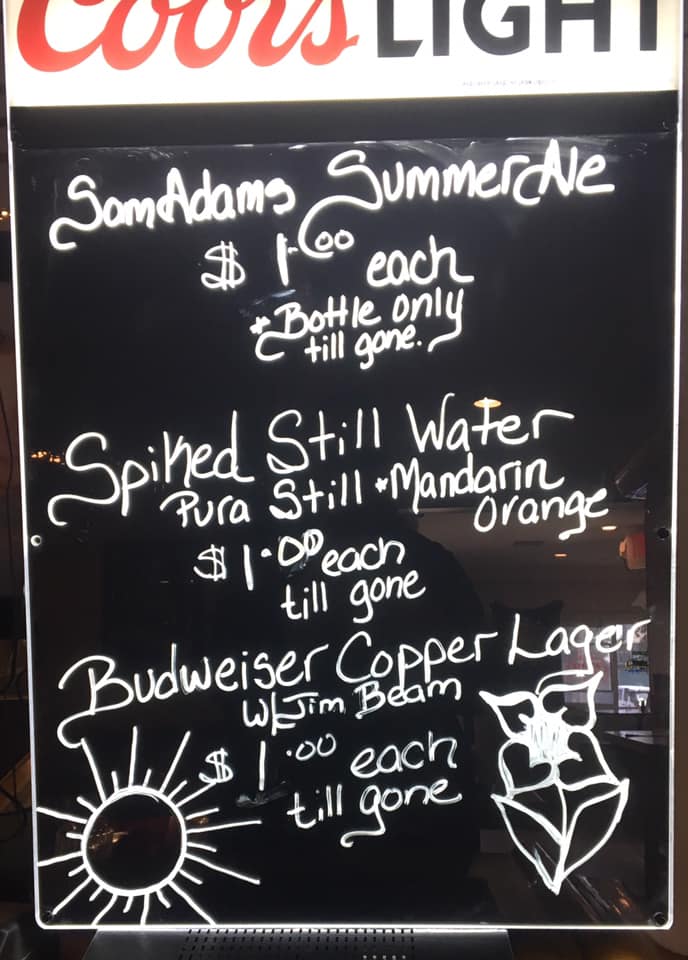 Coors LIGHT
Sam Adams Summer Ale
$1.00 each
*Bottle only
till gone.
Spiked Still Water
Pura Still *Mandarin
Orange
$1.00 each
till gone
Budweiser Copper Lager
W/Jim Beam
$1.00 each
till gone